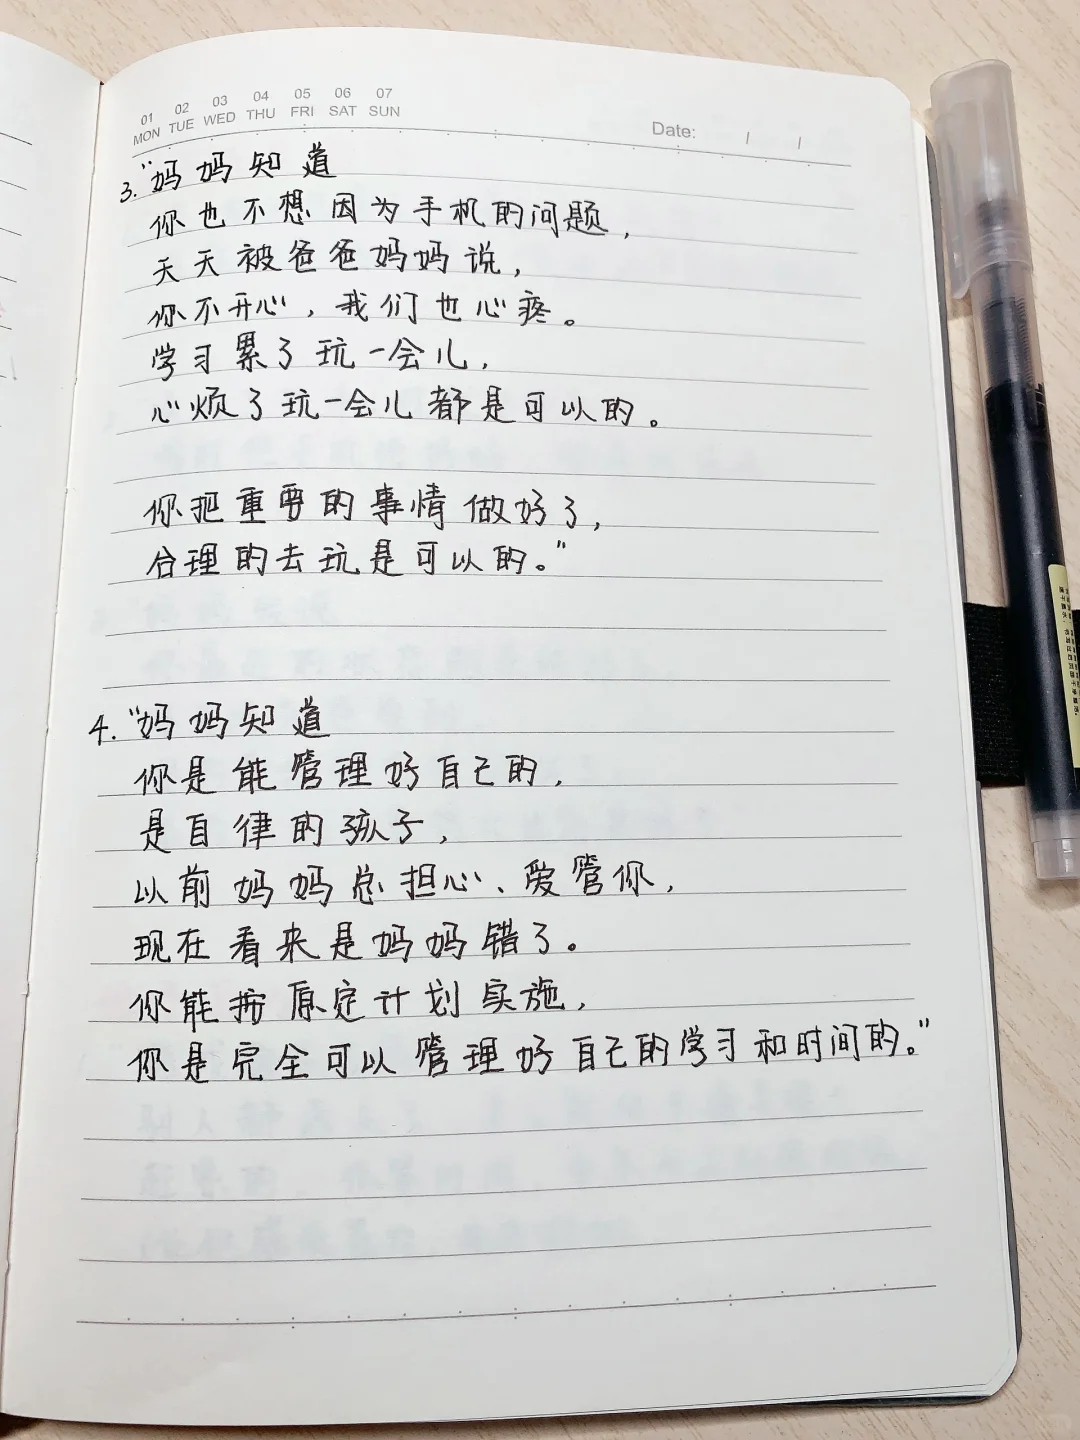 01 02 03 04 05 06 07
MON TUE WED THU FRI SAT SUN
Date: / /
3.“妈妈知道
你也不想因为手机的问题,
天天被爸爸妈妈说,
你不开心,我们也心疼。
学习累了玩一会儿,
心烦了玩一会儿都是可以的。
你把重要的事情做好了,
合理的去玩是可以的。”
4.“妈妈知道
你是能管理好自己的,
是自律的孩子,
以前妈妈总担心、爱管你,
现在看来是妈妈错了。
你能按原定计划实施,
你是完全可以管理好自己的学习和时间的。”